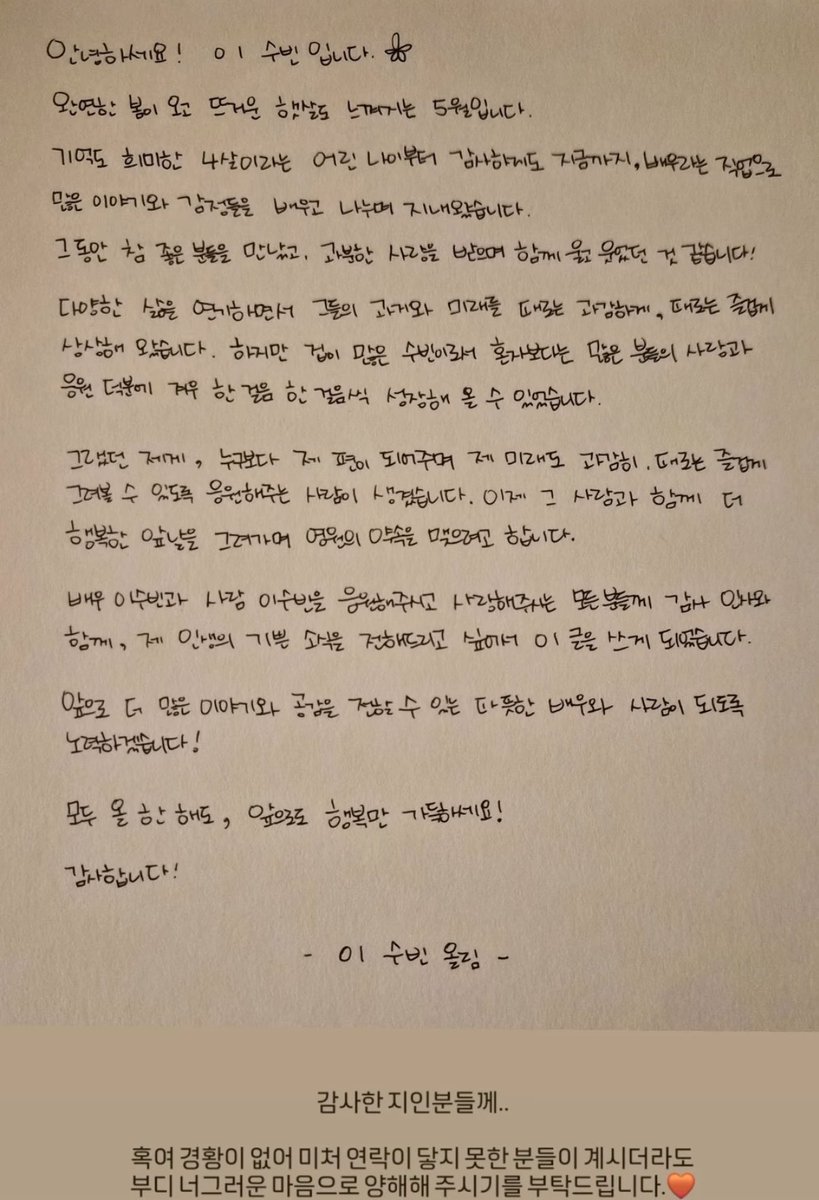 안녕하세요! 이 수빈입니다.
완연한 봄이 오고 뜨거운 햇살도 느껴지는 5월입니다.
기억도 희미한 4살이라는 어린 나이부터 감사하게도 지금까지, 배우라는 직업으로
많은 이야기와 감정들을 배우고 나누며 지내왔습니다.
그동안 참 좋은 분들을 만났고, 과분한 사랑을 받으며 함께 울고 웃었던 것 같습니다!
다양한 삶을 연기하면서 그들의 과거와 미래를 때로는 과감하게, 때로는 즐겁게
상상해 왔습니다. 하지만 겁이 많은 수빈이라서 혼자보다는 많은 분들의 사랑과
응원 덕분에 겨우 한 걸음 한 걸음씩 성장해 올 수 있었습니다.
그랬던 제게, 누구보다 제 편이 되어주며 제 미래도 과감히, 때로는 즐겁게
그려볼 수 있도록 응원해주는 사람이 생겼습니다. 이제 그 사람과 함께 더
행복한 앞날을 그려가며 영원의 약속을 맺으려고 합니다.
배우 이수빈과 사람 이수빈을 응원해주시고 사랑해주시는 모든분들께 감사 인사와
함께, 제 인생의 기쁜 소식을 전해드리고 싶어서 이 글을 쓰게 되었습니다.
앞으로 더 많은 이야기와 공감을 전할 수 있는 따뜻한 배우와 사람이 되도록
노력하겠습니다!
모두 올 한 해도, 앞으로도 행복만 가득하세요!
감사합니다!
- 이 수빈 올림 -
감사한 지인분들께..
혹여 경황이 없어 미처 연락이 닿지 못한 분들이 계시더라도
부디 너그러운 마음으로 양해해 주시기를 부탁드립니다.❤️